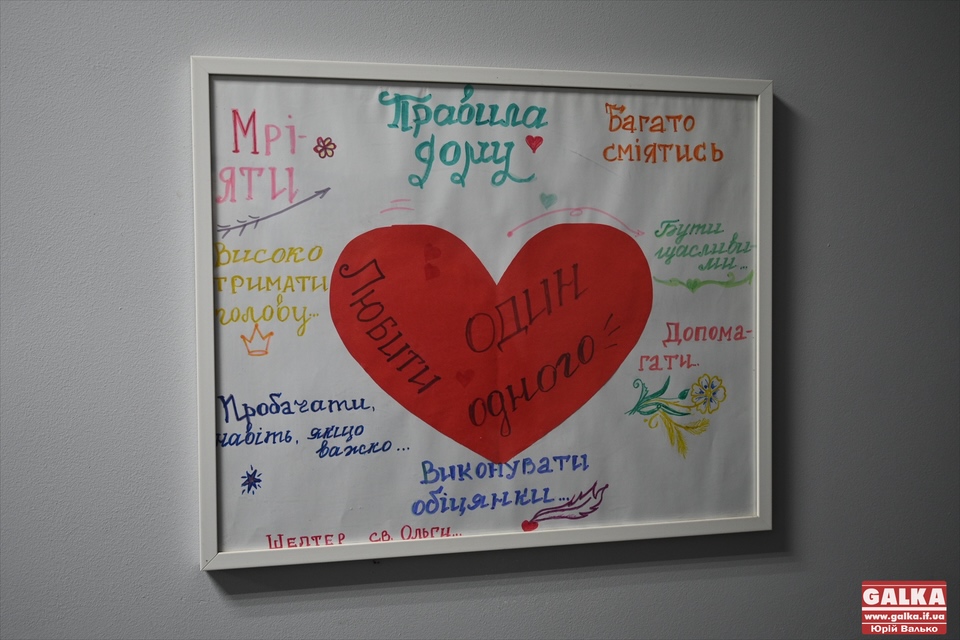 Правила
дому
Мрі-
яти
Багато
сміятись
Високо
тримати
голову...
Бути
щасливи-
ми...
Любити
один
одного
Допома-
гати...
Пробачати,
навіть, якщо
важко...
Виконувати
обіцянки...
Шелтер св. Ольги...
GALKA
www.galka.if.ua
Юрій Валько